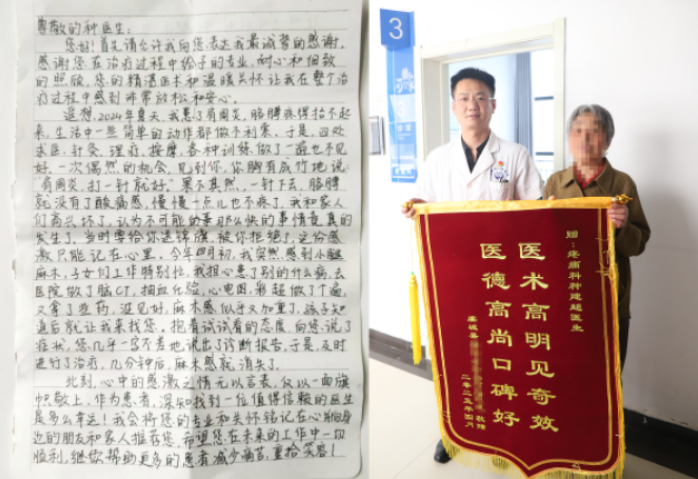 尊敬的种医生：
您好！首先请允许我向您表达我最诚挚的感谢，
感谢您在治疗过程中给予的专业、耐心和细致
的照顾，您的精湛医术和温暖关怀让我在整个治
疗过程中感到非常放松和安心。
遥想，2024年夏天，我患了肩周炎，胳膊疼得抬不起
来，生活中一些简单的动作都做不利索。于是，四处
求医，针灸、理疗、按摩、各种训练，做了一遍也不见
好。一次偶然的机会，见到你，你胸有成竹地说：
"肩周炎，打一针就好。"果不其然，一针下去，胳膊
就没有了酸痛感，慢慢一点儿也不疼了，我和家人
们高兴坏了，认为不可能的，那么快的事情竟真的
发生了。当时要给你送锦旗，被你拒绝了，这份感
激只能记在心里。今年四月初，我突然感到小腿
麻木，子女们工作特别忙，我担心患了别的什么病，去
医院做了脑CT，抽血化验，心电图，彩超做了个遍，
又拿了些药，没见好，麻木感似乎又加重了，孩子知
道后就让我来找您。抱着试试看的态度，向您说了
症状，您几乎一字不差地说出了诊断报告，于是，及时
进行了治疗，几分钟后，麻木感就消失了。
此刻，心中的感激之情无以言表，仅以一面旗
帜敬上，作为患者，深知找到一位值得信赖的医生
是多么幸运！我会将您的专业和关怀铭记在心，
边的朋友和家人推荐您，希望您在未来的工作中一切
顺利，继续帮助更多的患者减少痛苦，重拾笑容！
3
3
赠：疼痛科种建超医生
医术高明见奇效
医德高尚口碑好
虞城县
敬赠
二零二五年四月